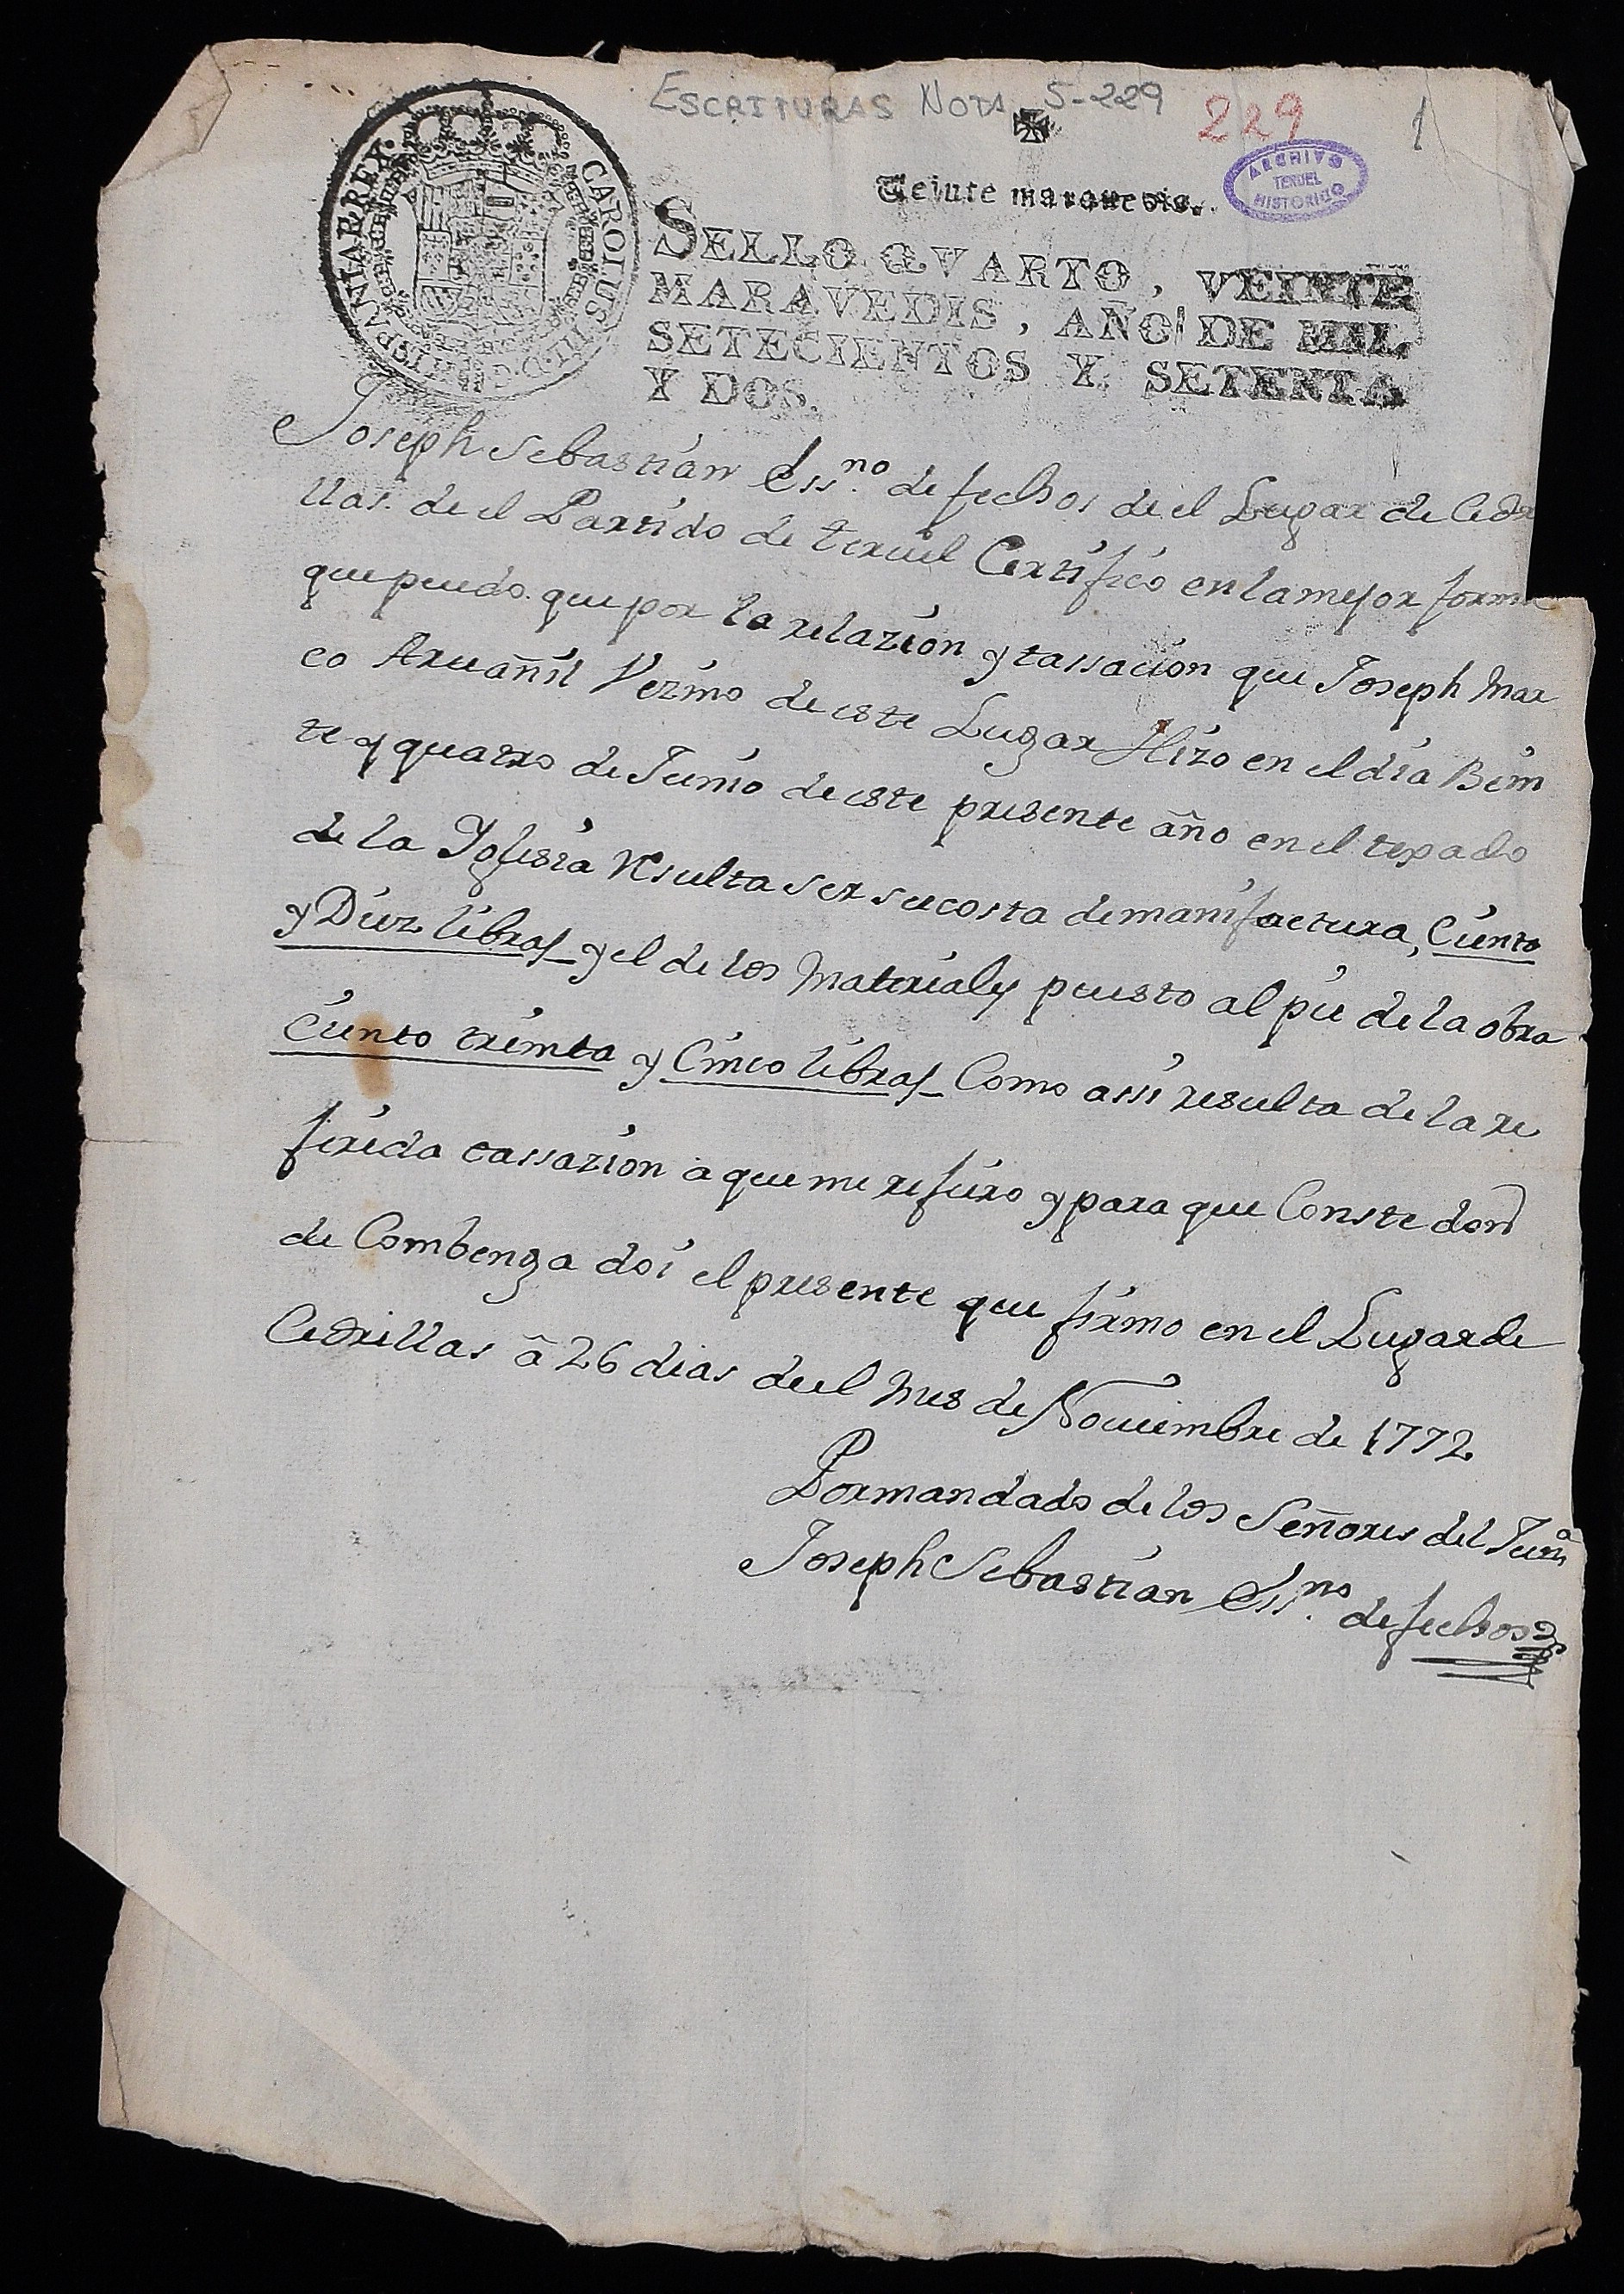 ESCRITURAS NOTA 5-229
229
1
ARCHIVO
TERUEL
HISTORICO
Veinte maravedis.
CAROLUS III D G HISPANIAR REX.
SELLO QVARTO, VEINTE
MARAVEDIS, AÑO DE MIL
SETECIENTOS Y SETENTA
Y DOS.
Joseph Sebastian Ess.no de fechos de el Lugar de Cedri
llas. de el Partido de teruel Certifico en la mejor forma
que puedo. que por la relazion y tassacion que Joseph Mar
co Aruañil Vezino de este Lugar Hizo en el dia Bein
te y quatro de Junio de este presente año en el texado
de la Yglesia Resulta ser su costa de manifactura, Ciento
y Diez libras y el de los Materiales puesto al pie de la obra
Ciento treinta y Cinco libras Como assi resulta de la re
ferida tassazion a que me refiero y para que Conste don
de Combenga doi el presente que firmo en el Lugar de
Cedrillas â 26 dias deel Mes de Nouiembre de 1772
Por mandado de los Señores del
Joseph Sebastian Ess.no de fechos